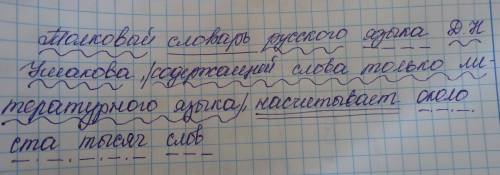 Толковай словарь русского языка Д.Н
Ушакова, содержащей слова только ли-
тературного языка, насчитывает около
ста тысяч слов